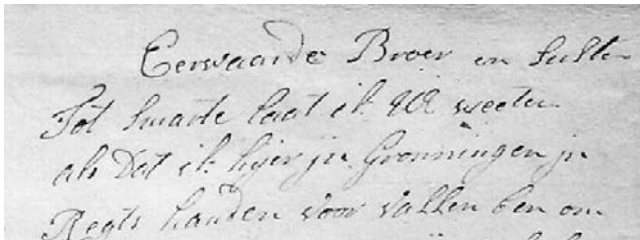 Eerwaarde Broer en Suster
Tot Smarte laat ik UE weeten
als Dat ik hijer jn Gronningen jn
Regts handen voor vallen ben om